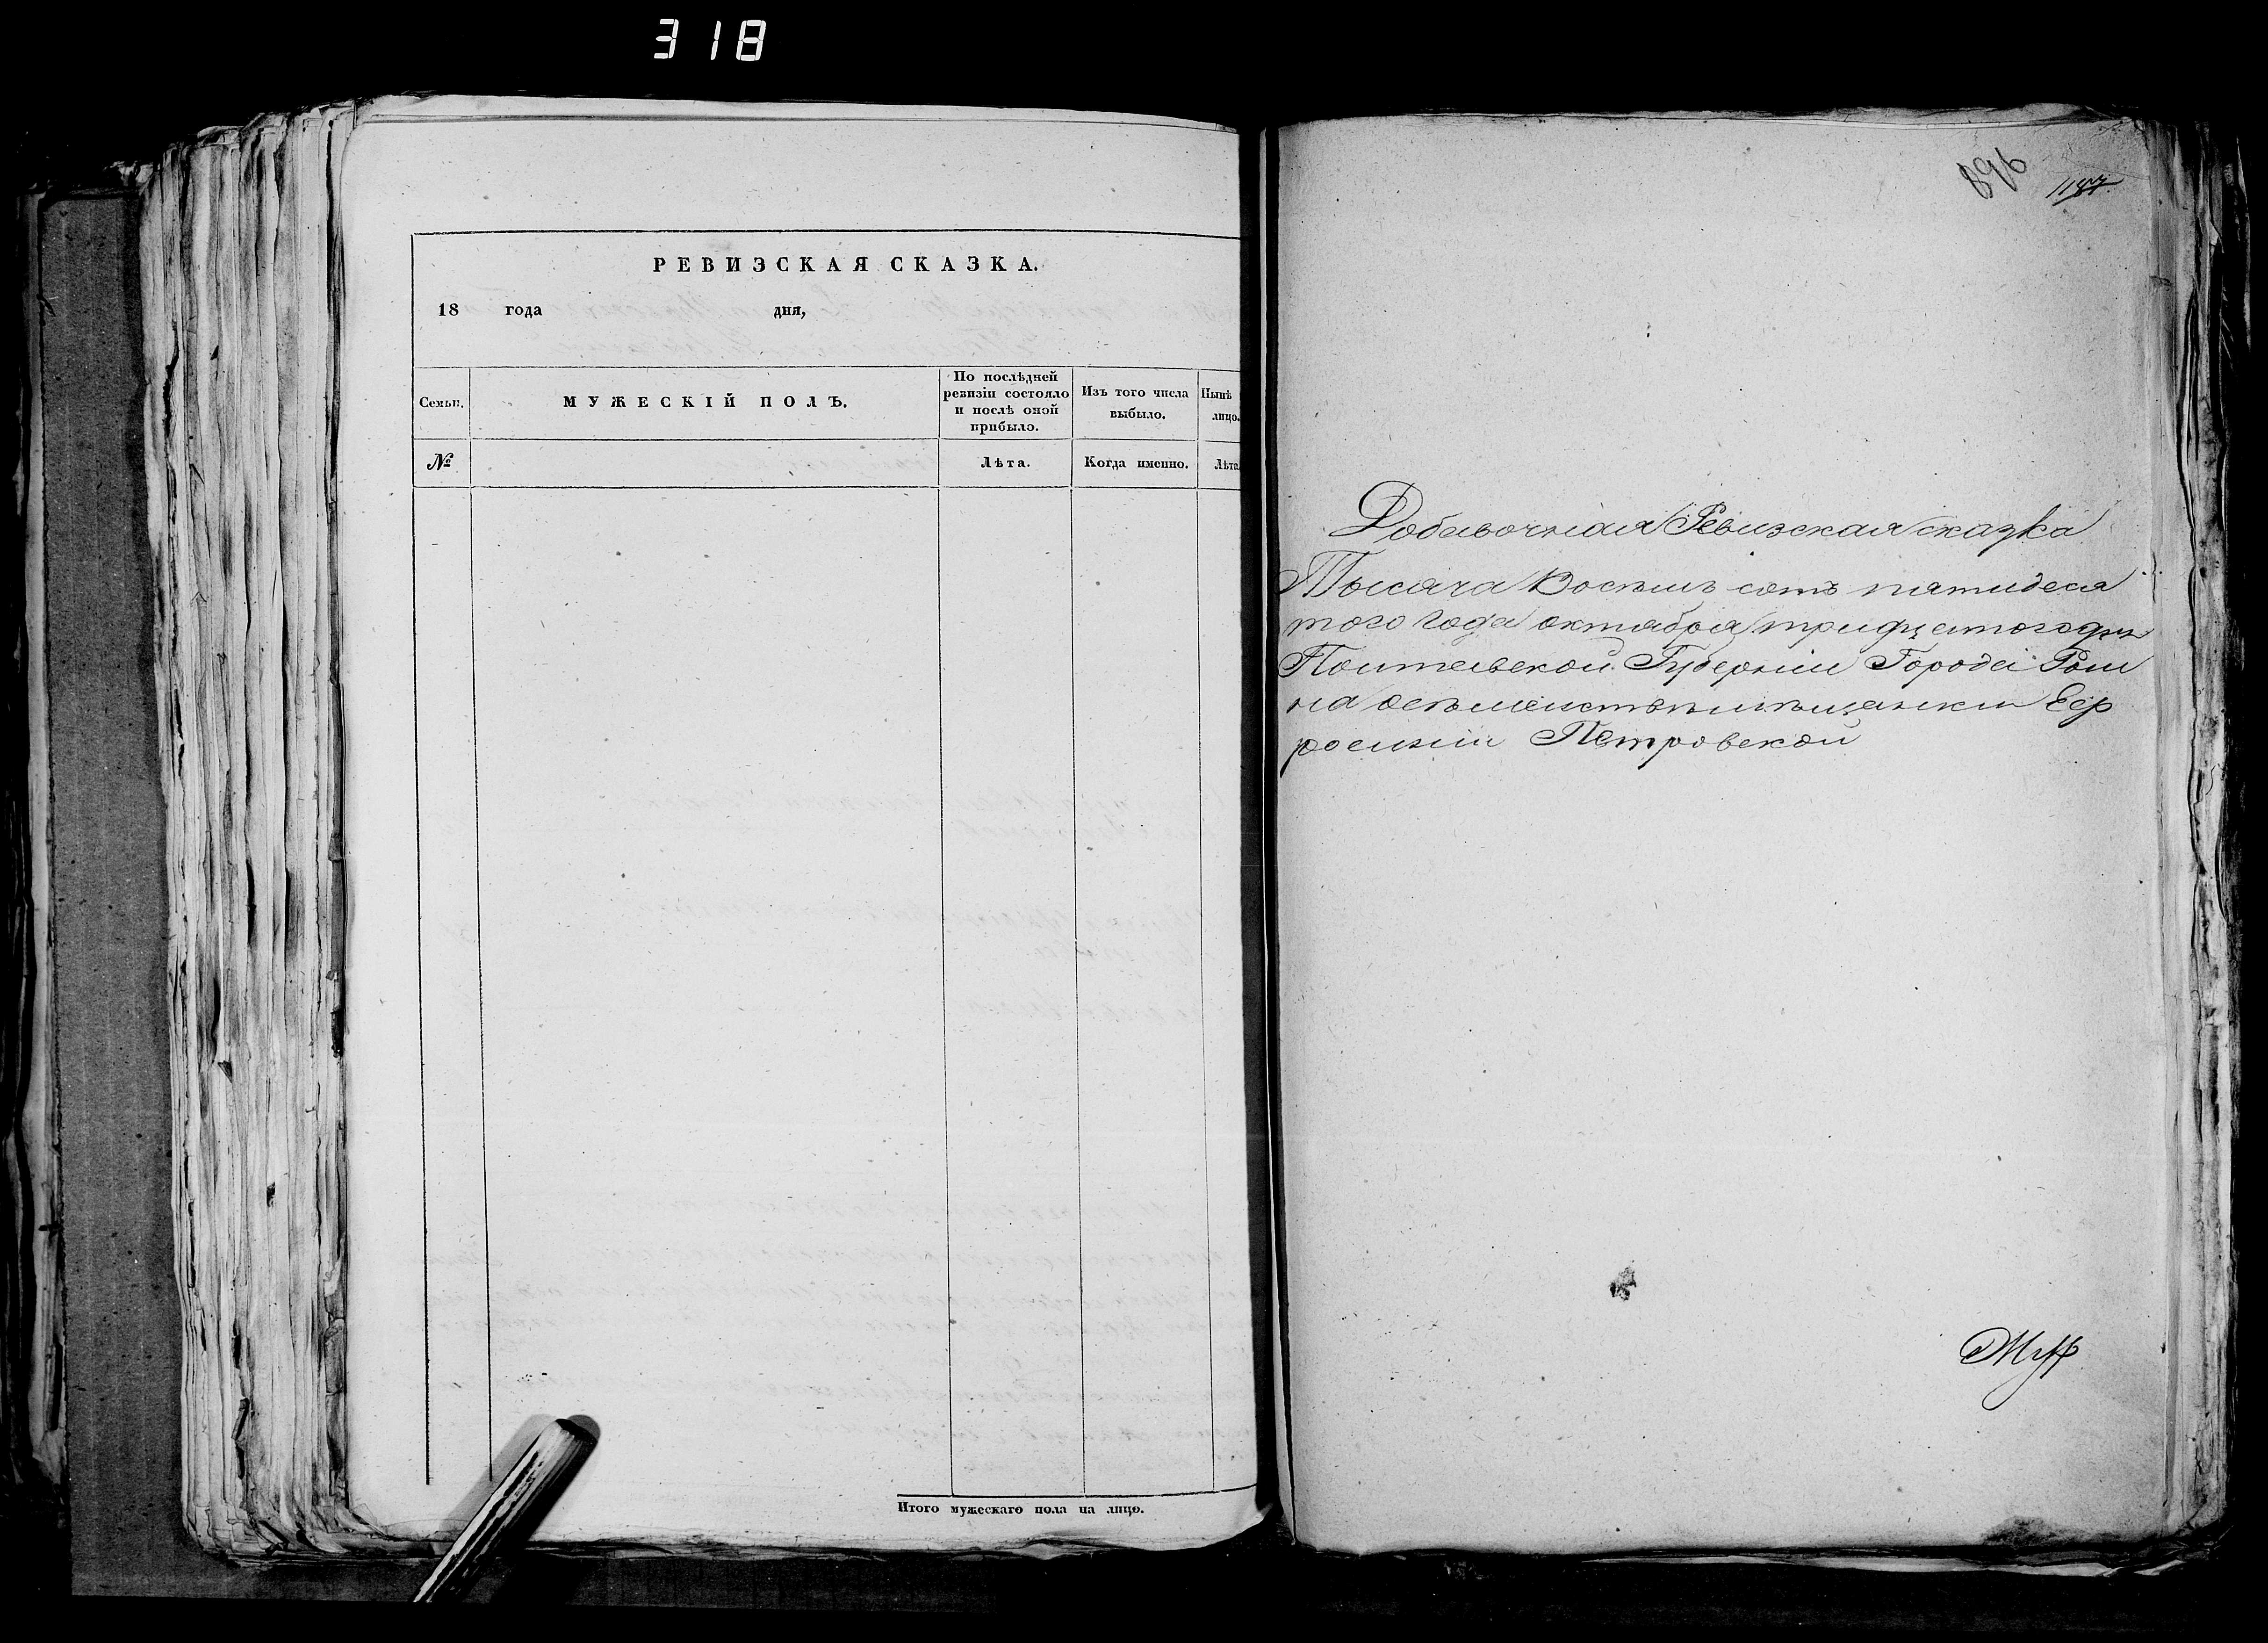 318
РЕВИЗСКАЯ СКАЗКА.
18 года дня,
Семьи.
МУЖЕСКІЙ ПОЛЪ.
По послѣдней
ревизіи состояло
и послѣ оной
прибыло.
Изъ того числа
выбыло.
Нынѣ
лицо.
№
Лѣта.
Когда именно.
Лѣта
Итого мужескаго пола на лицо.
896
1187
Добавочная Ревизская сказка
Тысяча Восемь сотъ пятидеся
того года октабра тридцатого дня
Полтавской Губерніи Города Ром
на
Петровской